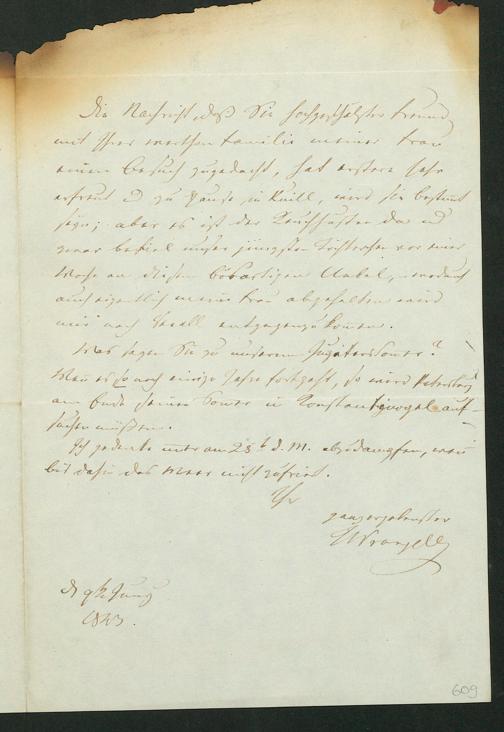 Die Nachricht, daß Sie hochgeschätzter Freund
mit Ihrer werthen Familie meiner Frau
einen Besuch zugedacht, hat erstere sehr
erfreut u zu Hause in Ruill, wird sie bestimmt
seyn; aber es ist der Keuchhusten da u
zwar befiel unser jüngstes Töchterchen vor einer
Woche an diesem bösartigen Uebel, wodurch
auch eigentlich meine Frau abgehalten wird
mir nach Revall entgegenzukommen.
Was sagen Sie zu unserem Sommer?
Wenn es so noch einige Jahre fortgeht, so wird Petersburg
am Ende seinen Sommer in Konstantinopel auf-
suchen müssen.
Ich gedenke unter am 25t d. M. abzudampfen, wenn
bis dahin das Meer nicht zufriert.
Ihr
ganzergebenster
Wrangell
d 9t Juny
1843.
609